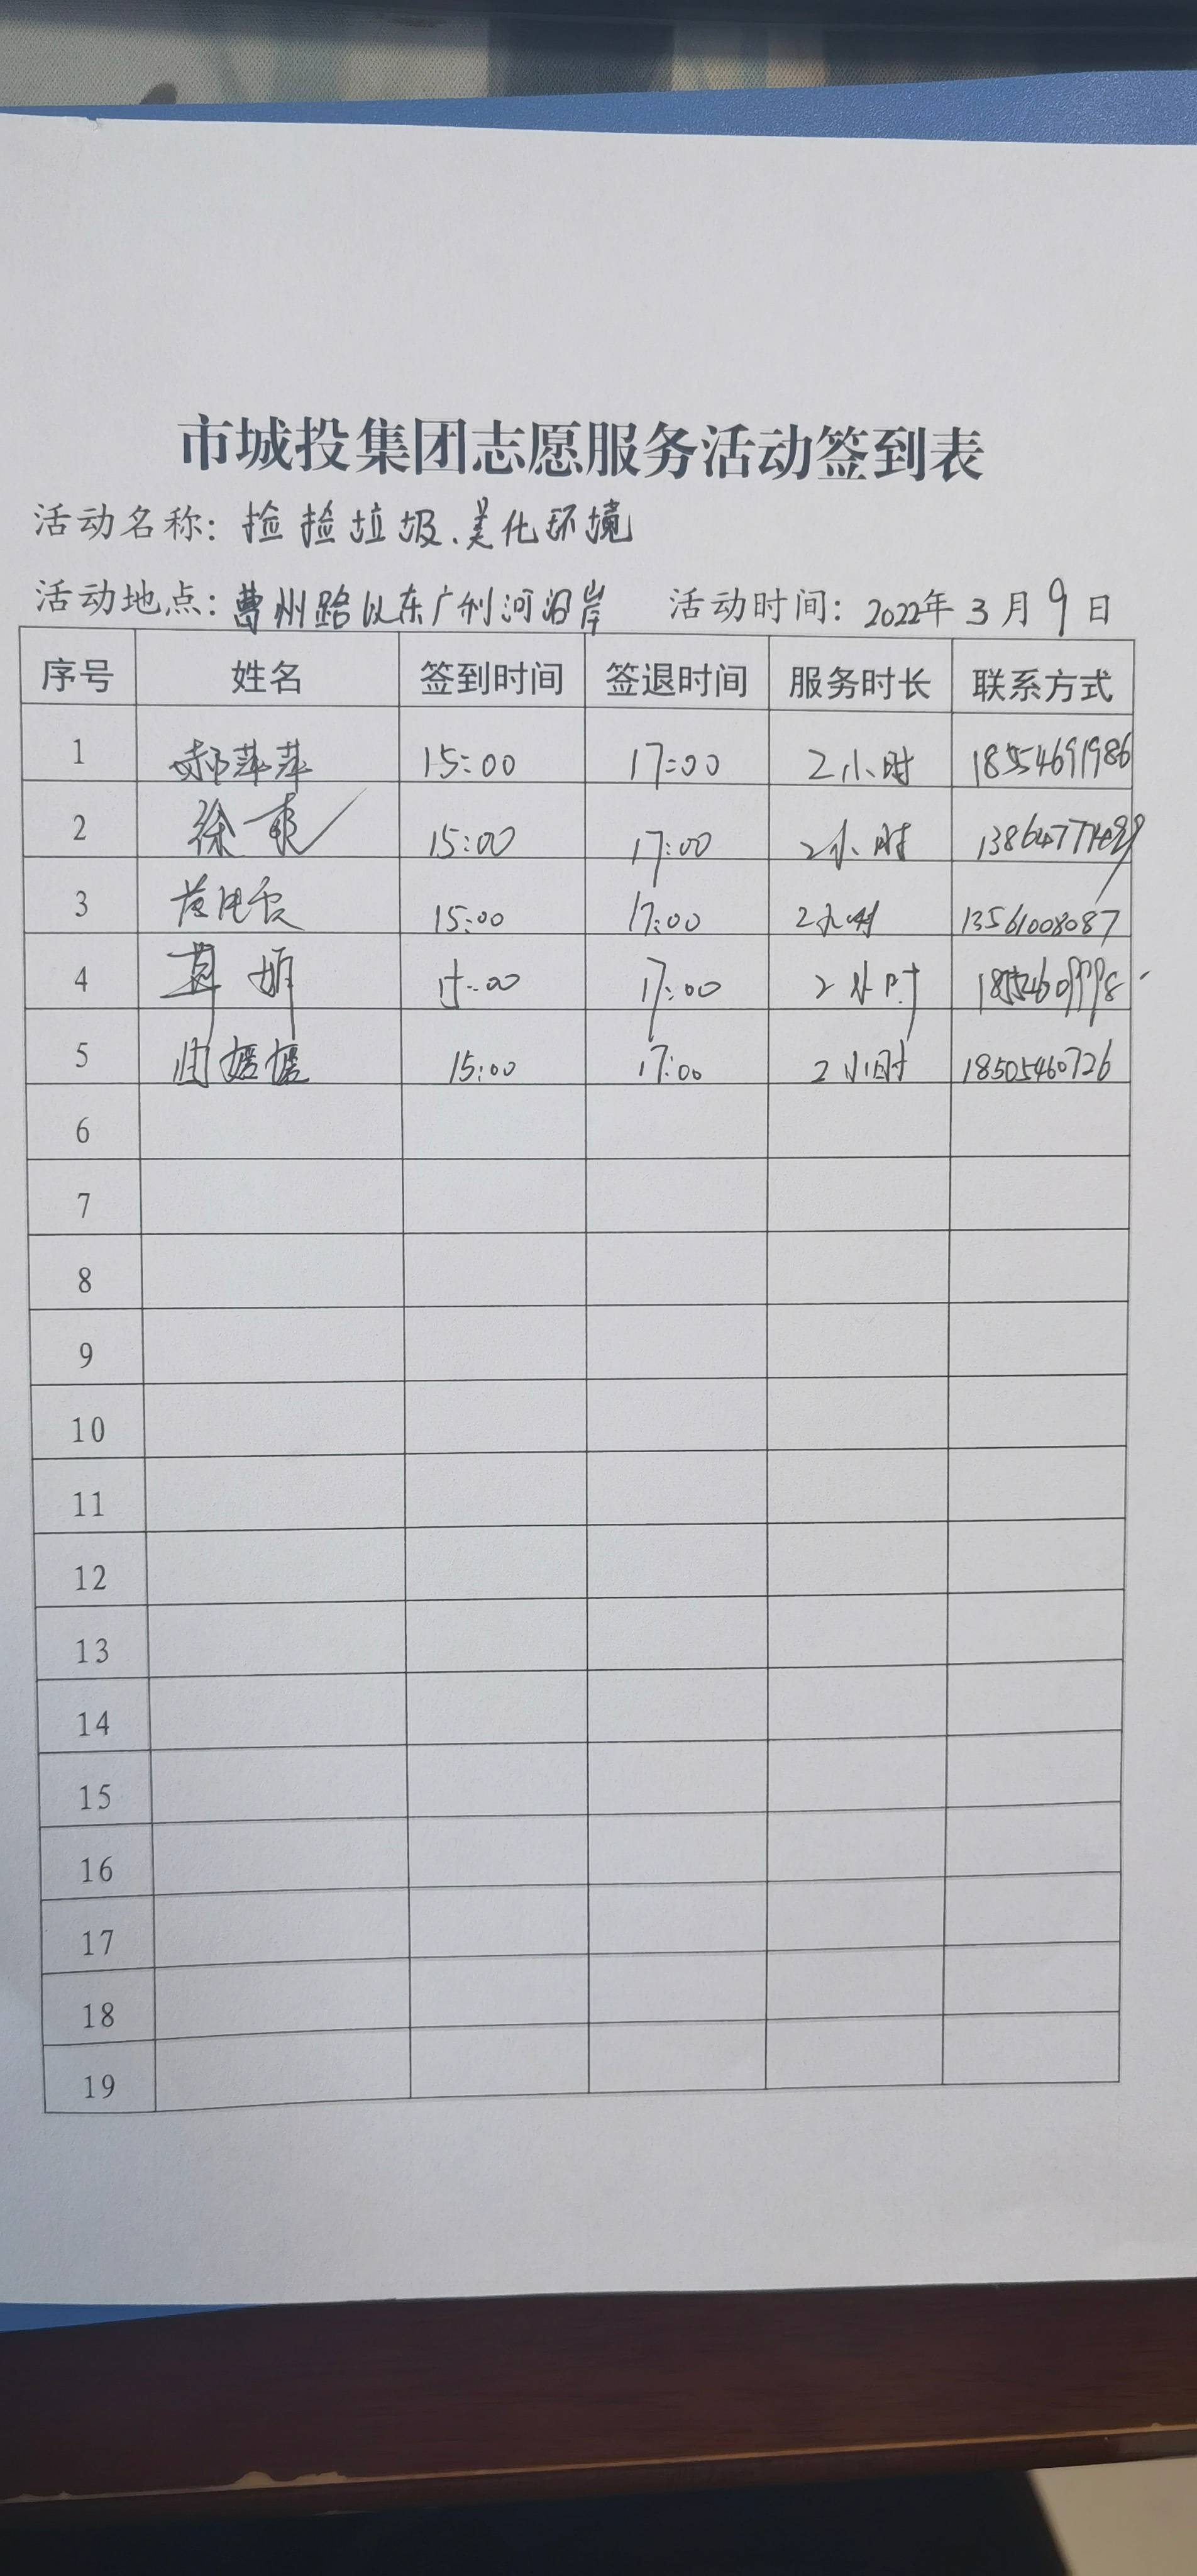 市城投集团志愿服务活动签到表
活动名称：捡捡垃圾、美化环境
活动地点：曹州路以东广利河沿岸 活动时间：2022年3月9日
序号 姓名 签到时间 签退时间 服务时长 联系方式
1 郝萍萍 15:00 17:00 2小时 18554691986
2 徐爽 15:00 17:00 2小时
3 15:00 17:00 2小时 13561008087
4 娟 15:00 17:00 2小时
5 媛媛 15:00 17:00 2小时 18505460726
6
7
8
9
10
11
12
13
14
15
16
17
18
19